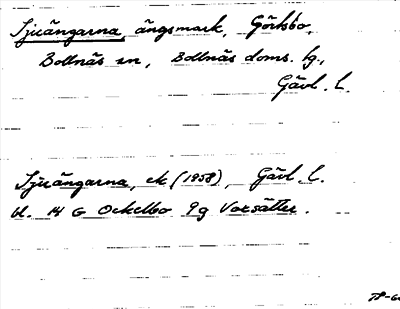 Sjuängarna, ängsmark, Görtsbo,
Bollnäs sn, Bollnäs doms. lg.,
Gävl. L.
Sjuängarna, ek (1958), Gävl. L.
bl. 14 G Ockelbo 9g Voxsätter.